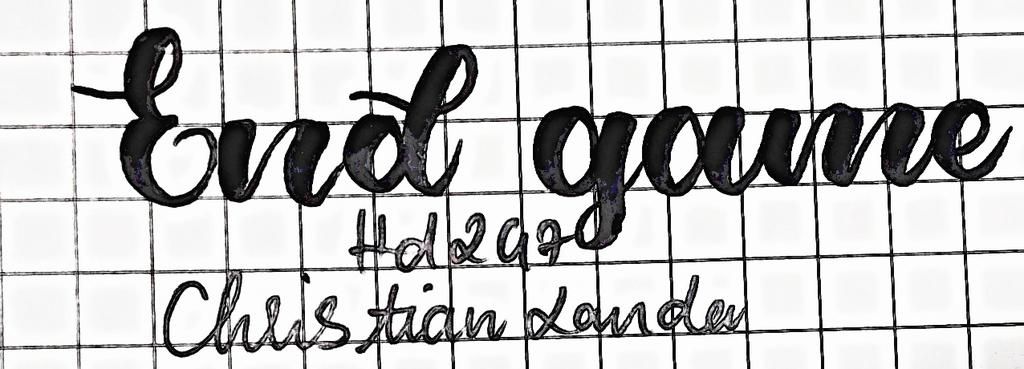 End game
Hd297
Christian Lander